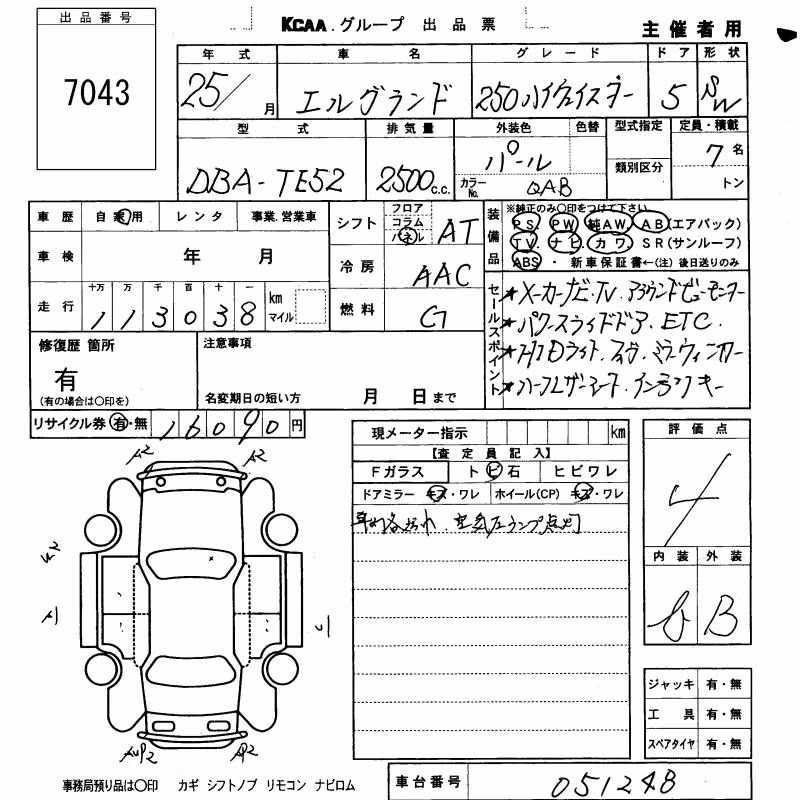 出品番号
7043
KCAA.グループ 出品票
主催者用
年式 車名 グレード ドア 形状
25/ 月 エルグランド 250ハイウェイスター 5 SW
型式 排気量 外装色 色替 型式指定 定員・積載
DBA-TE52 2500 c.c. パール 7 名
カラーNo. QAB 類別区分 トン
車歴 自家用 レンタ 事業.営業車
シフト フロア コラム パネル AT
車検 年 月
冷房 AAC
走行 十万 万 千 百 十 一
113038 km マイル
燃料 G
装備品
※純正のみ〇印をつけて下さい
PS. PW 純AW. AB(エアバック)
TV. ナビ. カワ. SR(サンルーフ)
ABS ・ 新車保証書←(注)後日送りのみ
セールスポイント
★メーカーナビ.TV.アラウンドビューモニター
★パワースライドドア.ETC.
★HIDライト.フォグ.ミラーウィンカー
★ハーフレザーシート.インテリキー
修復歴 箇所
有
(有の場合は〇印を)
注意事項
名変期日の短い方 月 日まで
リサイクル券 有・無 16090円
現メーター指示 km
【査定員記入】
Fガラス トビ石 ヒビワレ
ドアミラー キズ・ワレ ホイール(CP) キズ・ワレ
車内各汚れ.空気圧ランプ点灯
評価点
4
内装 外装
B
A2 A2
A2
ジャッキ 有・無
工具 有・無
スペアタイヤ 有・無
事務局預り品は〇印 カギ シフトノブ リモコン ナビロム
車台番号 051248